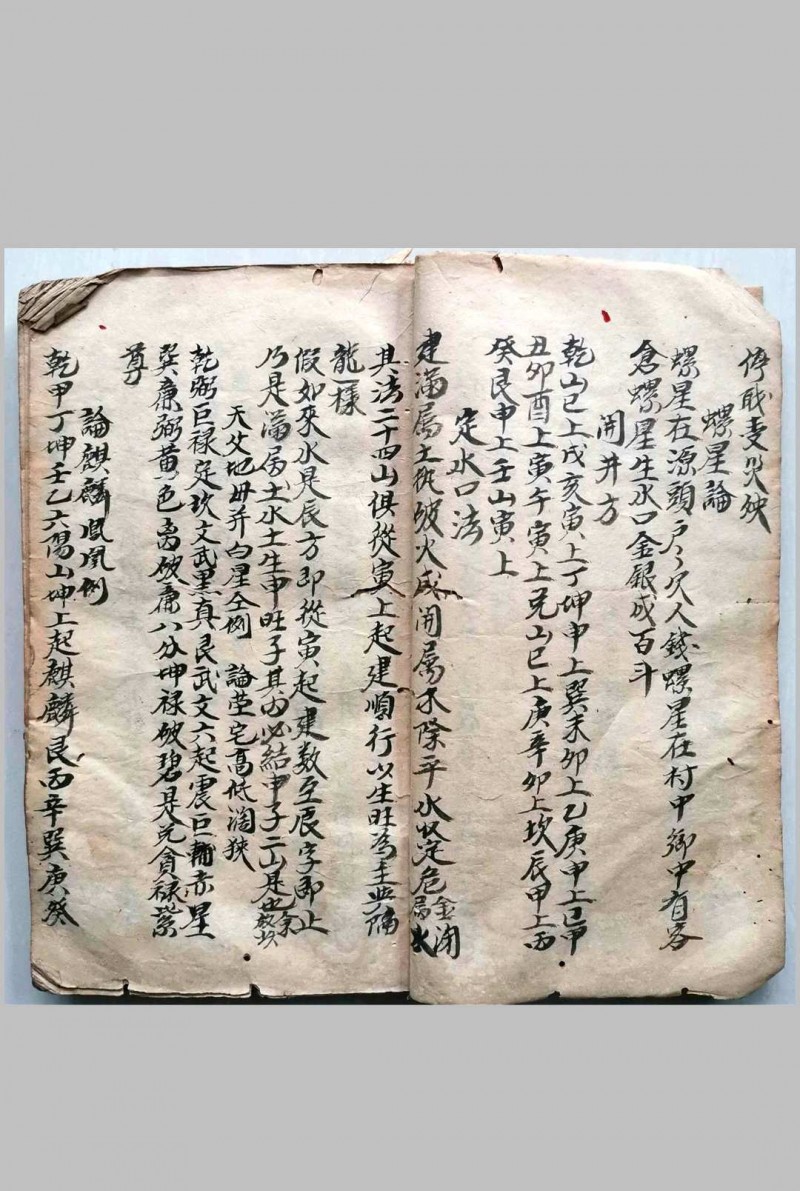 停瓩支災殃
螺星論
螺星在源頭戶〻欠人錢螺星在村中鄉中有客
倉螺星生水口金銀成百斗
開井方
乾山巳上戌亥寅上丁坤申上巽未卯上乙庚甲上巳甲
丑卯酉上寅午寅上兌山巳上庚辛卯上坎辰甲上丙
癸艮申上壬山寅上
定水口法
建滿屬土執破火成開屬木除平水收定危金閉屬水
其法二十四山俱從寅上起建順行以生旺為主與陽
龍一樣
假如來水是辰方即從寅起建數至辰字即止
乃是滿屬土水土生申旺子其內必結申子二山是也餘
天父地母并白星仝例　論塋宅高低濶狹
乾弼巨祿定坎文武黑真艮武文六起震巨輔赤星
巽廉弼黃色离破廉八分坤祿破碧是兌貪祿紫
尊
論麒麟鳳凰例
乾甲丁坤壬乙六陽山坤上起麒麟艮丙辛巽庚癸